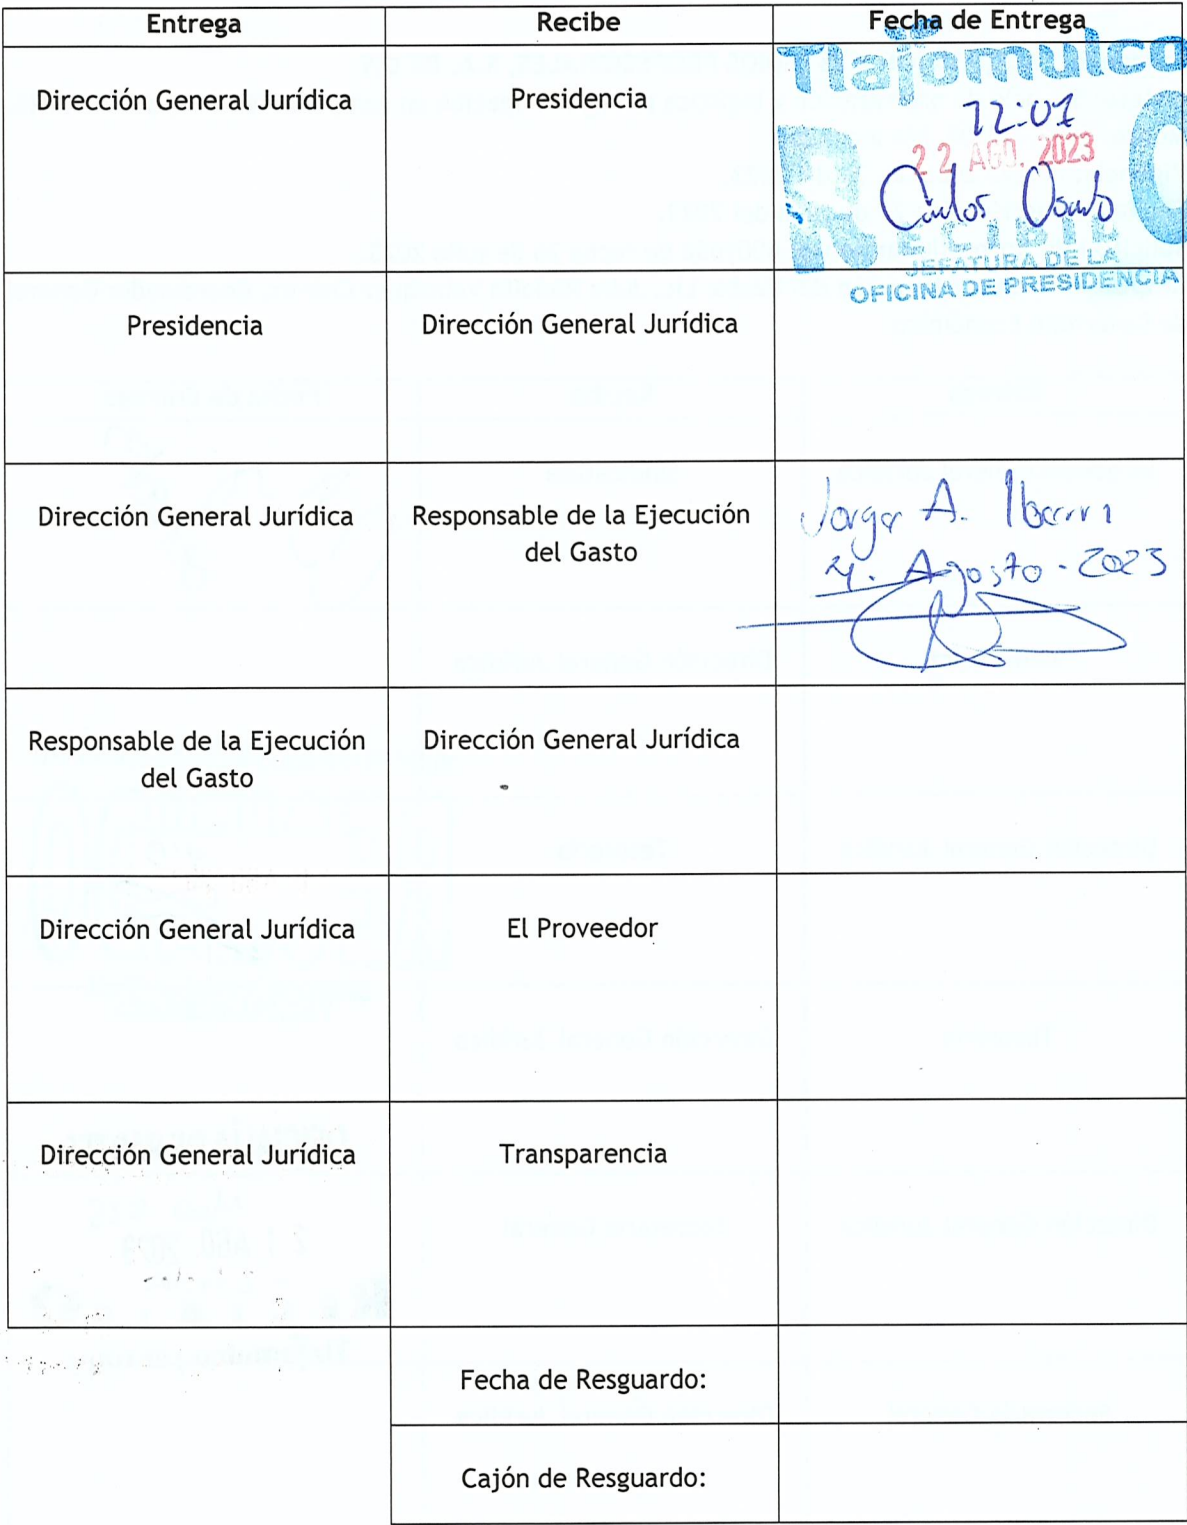 Entrega Recibe Fecha de Entrega
Dirección General Jurídica Presidencia
Tlajomulco
12:07
22 AGO. 2023
Carlos Osado
RECIBIDO
JEFATURA DE LA
OFICINA DE PRESIDENCIA
Presidencia Dirección General Jurídica
Dirección General Jurídica Responsable de la Ejecución
del Gasto
Jorge A. Ibarra
Agosto - 2023
Responsable de la Ejecución
del Gasto
Dirección General Jurídica
Dirección General Jurídica El Proveedor
Dirección General Jurídica Transparencia
Fecha de Resguardo:
Cajón de Resguardo: